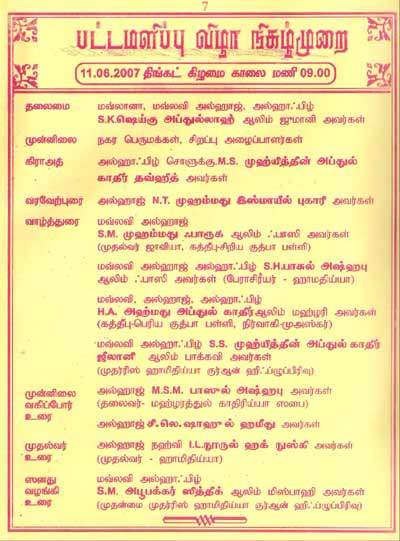 7
பட்டமளிப்பு விழா நிகழ்முறை
11.06.2007 திங்கட் கிழமை காலை மணி 09.00
தலைமை மவ்லானா, மவ்லவி அல்ஹாஜ், அல்ஹாஃபிழ்
S.K.ஷெய்கு அப்துல்லாஹ் ஆலிம் ஜுமானி அவர்கள்
முன்னிலை நகர பெருமக்கள், சிறப்பு அழைப்பாளர்கள்
கிராஅத் அல்ஹாஃபிழ் சொளுக்கு.M.S. முஹ்யித்தீன் அப்துல்
காதிர் தவ்ஹீத் அவர்கள்
வரவேற்புரை அல்ஹாஜ் N.T. முஹம்மது இஸ்மாயீல் புகாரீ அவர்கள்
வாழ்த்துரை மவ்லவி அல்ஹாஜ்
S.M. முஹம்மது ஃபாரூக் ஆலிம் ஃபாஸி அவர்கள்
(முதல்வர் ஜாவியா, கத்தீப்-சிறிய குத்பா பள்ளி)
மவ்லவி அல்ஹாஜ் அல்ஹாஃபிழ் S.H.பாசுல் அஷ்ஹபு
ஆலிம் ஃபாஸி அவர்கள் (பேராசிரியர் - ஹாமதிய்யா)
மவ்லவி, அல்ஹாஜ், அல்ஹாஃபிழ்
H.A. அஹ்மது அப்துல் காதிர்ஆலிம் மஹ்ழரி அவர்கள்
(கத்தீப்-பெரிய குத்பா பள்ளி, நிர்வாகி-முஅஸ்கர்)
மவ்லவி அல்ஹாஃபிழ் S.S. முஹ்யித்தீன் அப்துல் காதிர்
ஜீலானீ ஆலிம் பாக்கவி அவர்கள்
(முதர்ரிஸ் ஹாமிதிய்யா குர்ஆன் ஹிஃப்ழுப்பிரிவு)
முன்னிலை அல்ஹாஜ் M.S.M. பாஸுல் அஷ்ஹபு அவர்கள்
வகிப்போர் (தலைவர்- மஹ்ழரத்துல் காதிரிய்யா ஸபை)
உரை
அல்ஹாஜ் சீ.லெ.ஷாஹுல் ஹமீது அவர்கள்
முதல்வர் அல்ஹாஜ் நஹ்வி I.L.நூருல் ஹக் நுஸ்கி அவர்கள்
உரை (முதல்வர் - ஹாமிதிய்யா)
ஸனது மவ்லவி அல்ஹாஃபிழ்
வழங்கி S.M. அபூபக்கர் ஸித்தீக் ஆலிம் மிஸ்பாஹி அவர்கள்
உரை (முதன்மை முதர்ரிஸ் ஹாமிதிய்யா குர்ஆன் ஹிஃப்ழுப்பிரிவு)